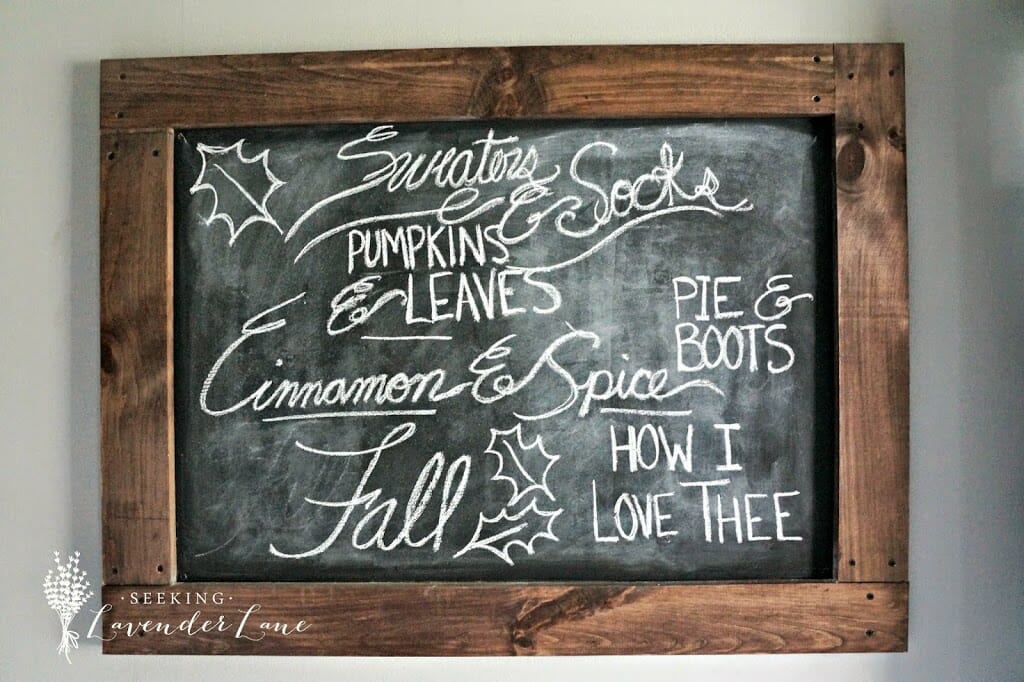 Sweaters & Socks
PUMPKINS
& LEAVES
PIE &
BOOTS
Cinnamon & Spice
Fall
HOW I
LOVE THEE
·SEEKING·
Lavender Lane